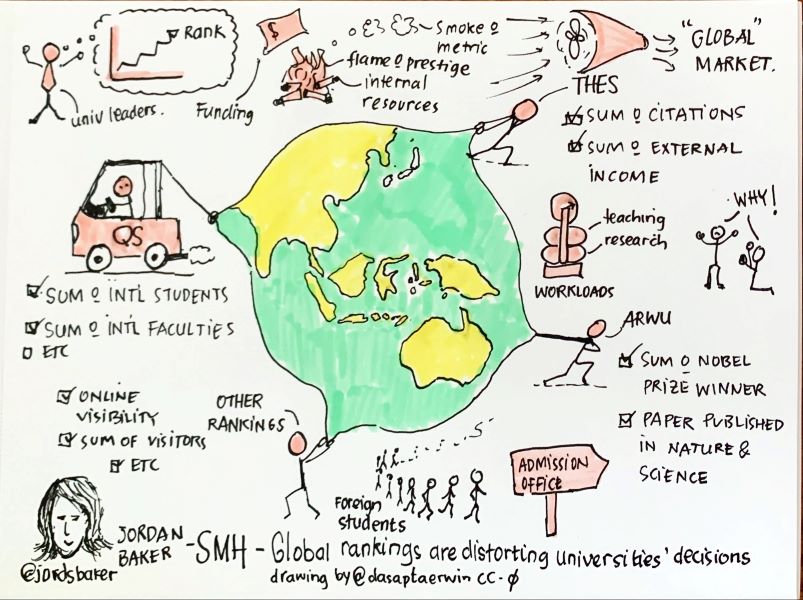 Rank
univ leaders.
Funding
$
smoke o
metric
flame o prestige
internal
resources
"GLOBAL"
MARKET.
THES
SUM o CITATIONS
SUM o EXTERNAL
INCOME
teaching
research
WORKLOADS
WHY!
QS
SUM o INT'L STUDENTS
SUM o INT'L FACULTIES
ETC
ARWU
SUM o NOBEL
PRIZE WINNER
PAPER PUBLISHED
IN NATURE &
SCIENCE
ONLINE
VISIBILITY
SUM OF VISITORS
ETC
OTHER
RANKINGS
Foreign
students
ADMISSION
OFFICE
JORDAN
BAKER
@jordsbaker
-SMH - Global rankings are distorting universities' decisions
drawing by @dasaptaerwin CC-0